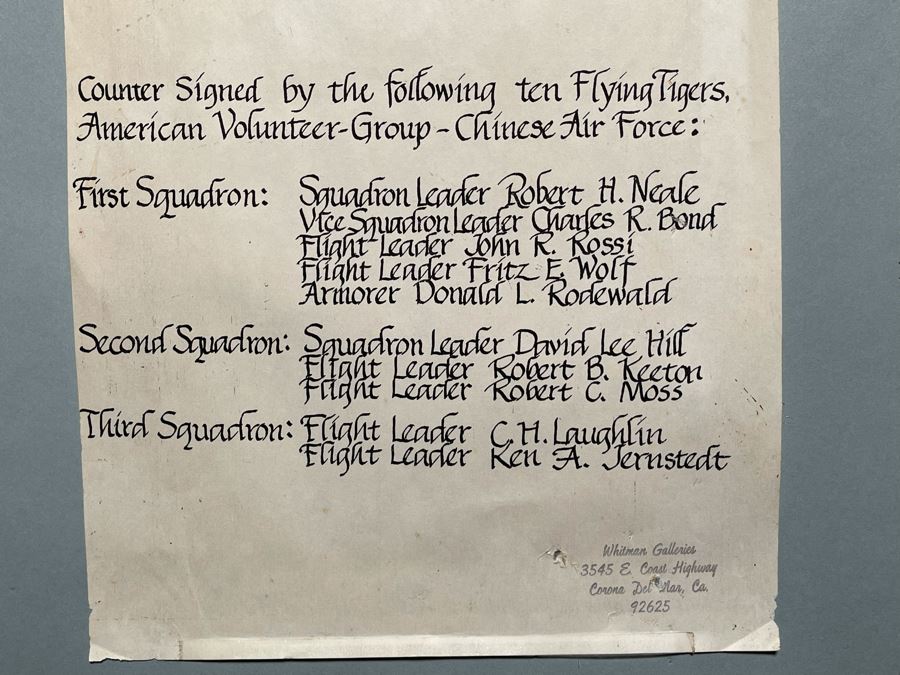 Counter Signed by the following ten Flying Tigers,
American Volunteer-Group - Chinese Air Force:
First Squadron: Squadron Leader Robert H. Neale
Vice Squadron Leader Charles R. Bond
Flight Leader John R. Rossi
Flight Leader Fritz E. Wolf
Armorer Donald L. Rodewald
Second Squadron: Squadron Leader David Lee Hill
Flight Leader Robert B. Keeton
Flight Leader Robert C. Moss
Third Squadron: Flight Leader C.H. Laughlin
Flight Leader Ken A. Jernstedt
Whitman Galleries
3545 E. Coast Highway
Corona Del Mar, Ca.
92625